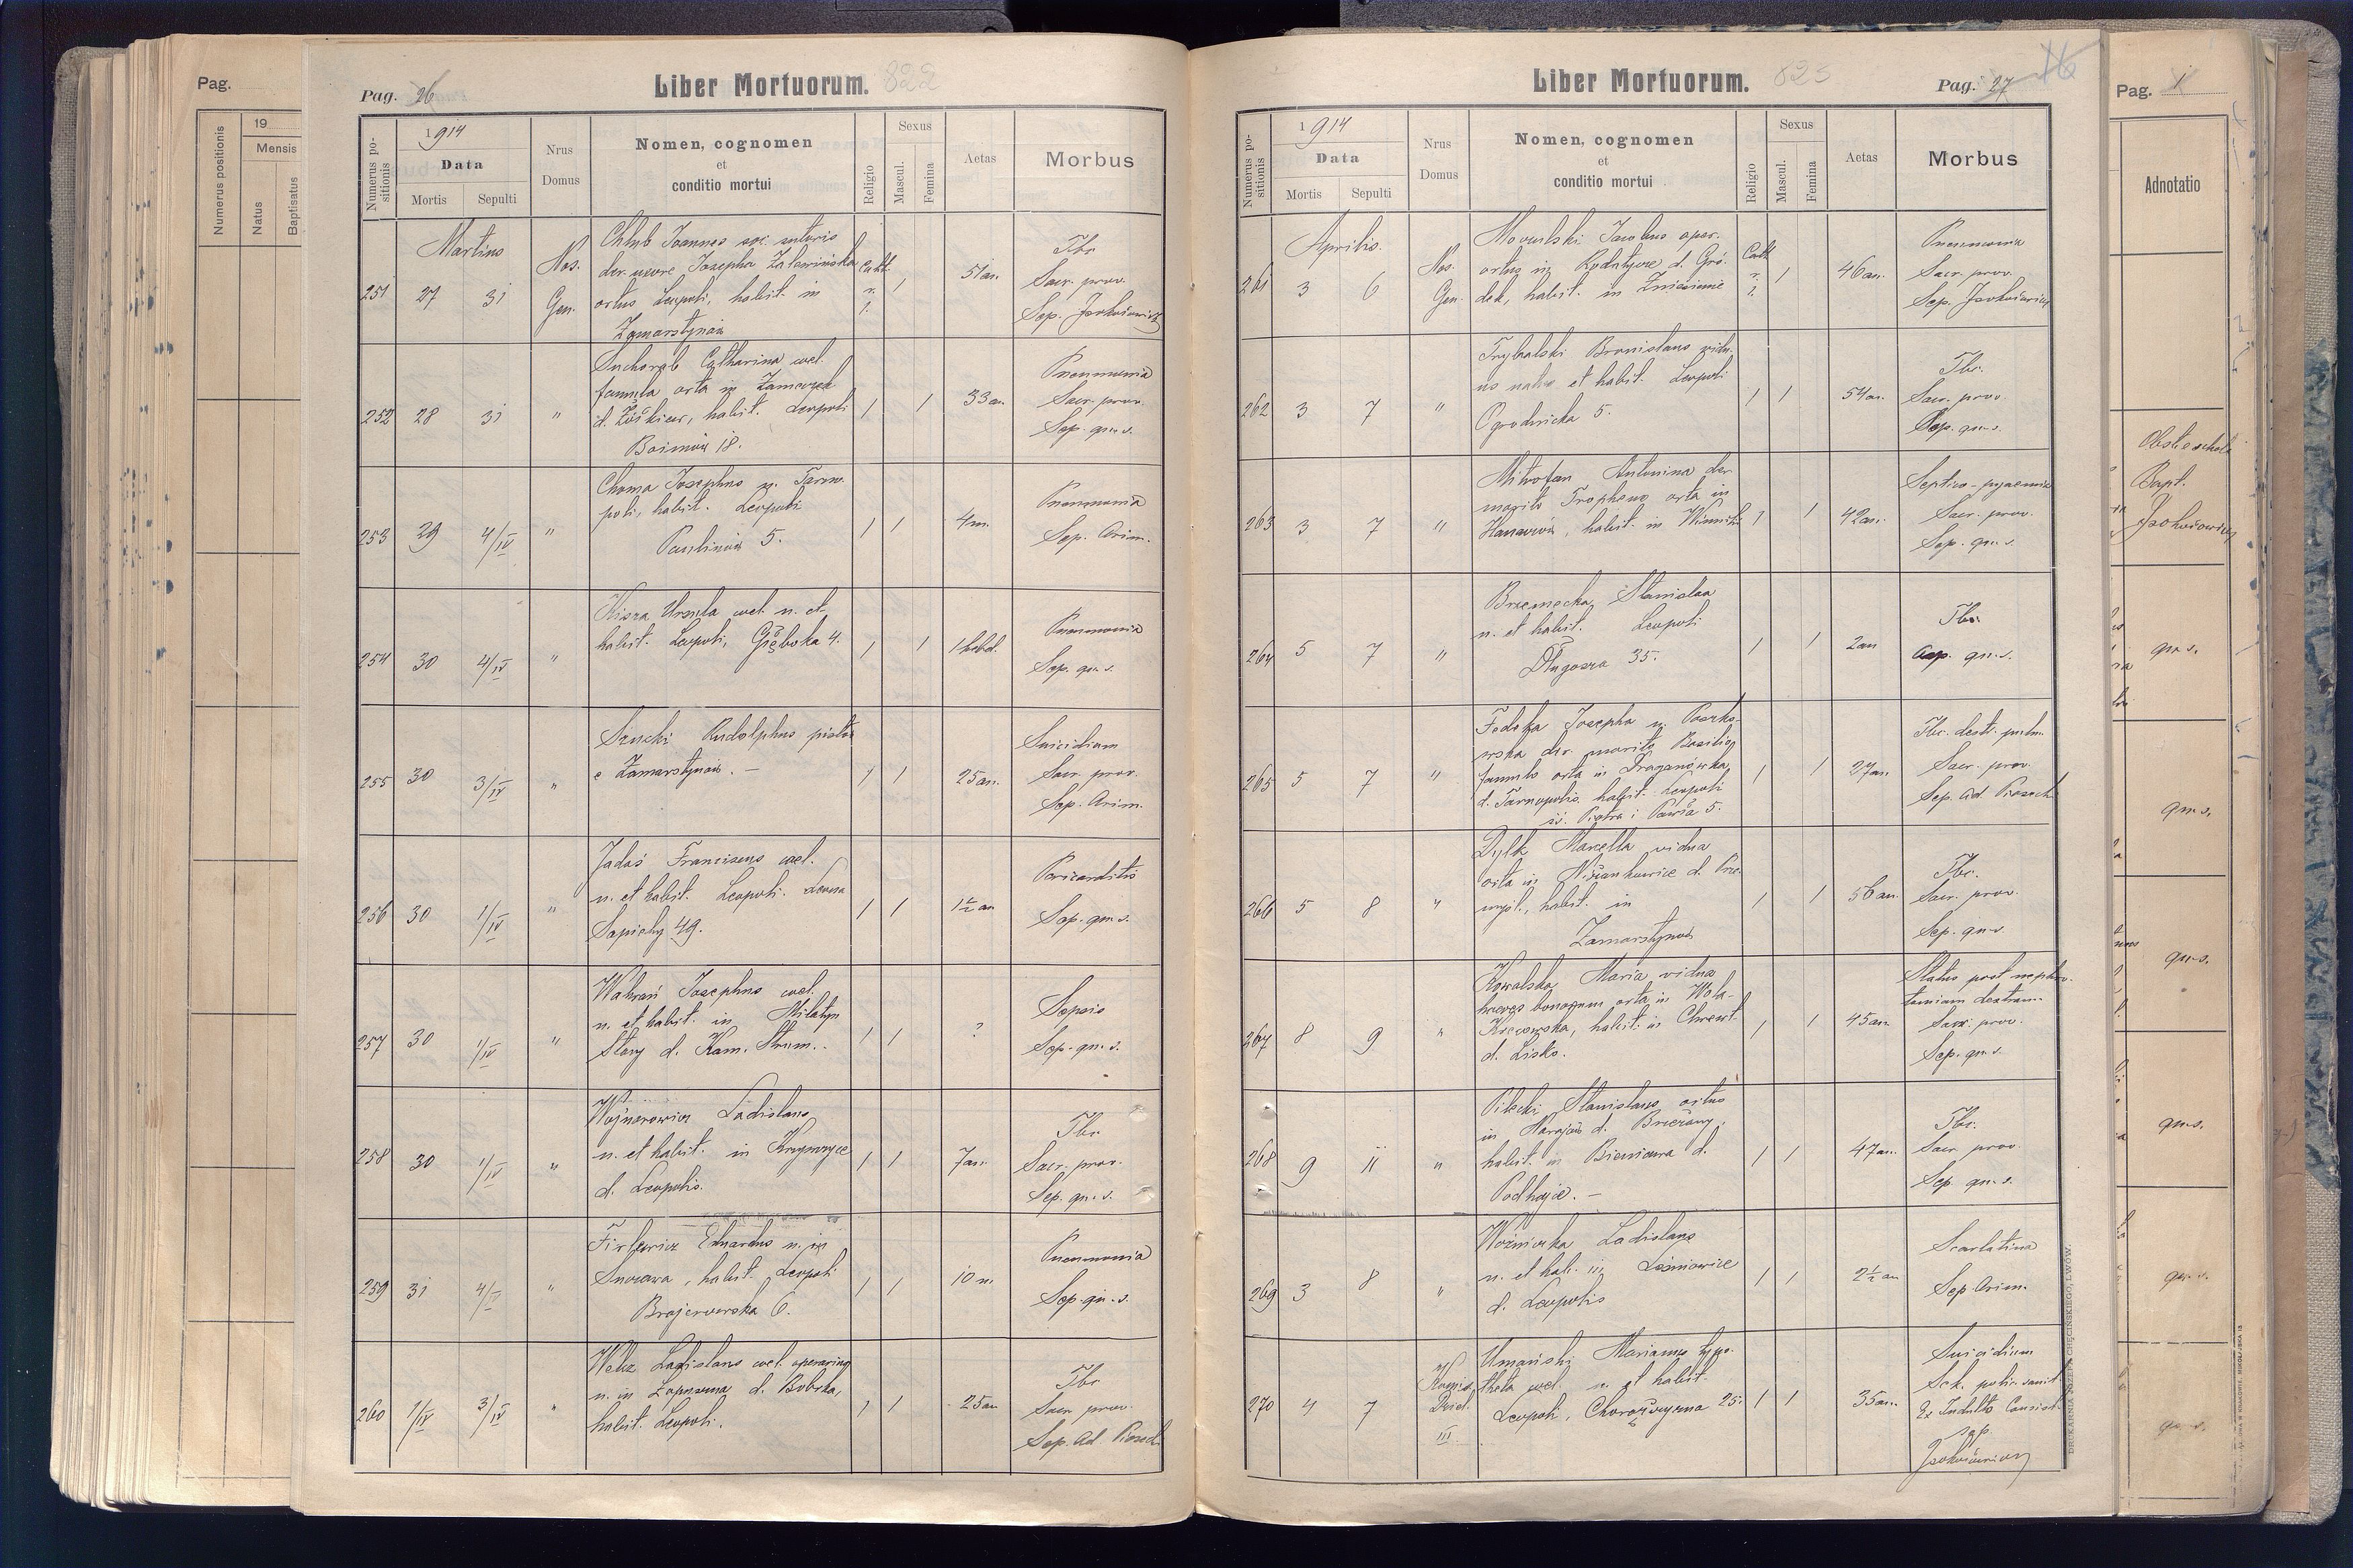 Pag.
Numerus positionis
19
Mensis
Natus
Baptisatus
Pag. 26
Liber Mortuorum. 822
Numerus positionis
1914
Data
Mortis
Sepulti
Nrus Domus
Nomen, cognomen
et
conditio mortui
Religio
Sexus
Mascul.
Femina
Aetas
Morbus
Martius
251 27 31 Nos. Gen.
Chlub Joannes opi. sutoris
der. uxore Josepha
ortus Leopoli, habit. in
Zamarstynów
Cath. r. l. 1 51 an.
Tbc
Sacr. prov.
Sep.
252 28 31 "
Suchorab Catharina coel.
famula orta in Zameczek
d. Żółkiew, habit. Leopoli
Boimów 18.
1 1 33 an.
Pneumonia
Sacr. prov.
Sep. qu. s.
253 29 4/IV "
Choma Josephus n. Tarno
poli, habit. Leopoli
Paulinów 5.
1 1 4 m.
Pneumonia
Sep. Arim.
254 30 4/IV "
Kisza Ursula coel. n. et
habit. Leopoli, Głęboka 4.
1 1 1 hebd.
Pneumonia
Sep. qu. s.
255 30 3/IV "
Szucki Rudolphus pistor
e Zamarstynów. —
1 1 25 an.
Suicidium
Sacr. prov.
Sep. Arim.
256 30 1/IV "
Jadaś Franciscus coel.
n. et habit. Leopoli. Leona
Sapiehy 49.
1 1 1½ an
Pericarditis
Sep. qu. s.
257 30 1/IV "
Josephus coel.
n. et habit. in Milatyn
Stary d. Kam. Strum.
1 1 ?
Sepsis
Sep. qu. s.
258 30 1/IV "
Wojnarowicz Ladislaus
n. et habit. in Krzywczyce
d. Leopolis.
1 1 7 an.
Tbc
Sacr. prov.
Sep. qu. s.
259 31 4/IV "
Eduardus n. in
habit. Leopoli
Brajerowska 6.
1 1 10 m.
Pneumonia
Sep. qu. s.
260 1/IV 3/IV "
Ladislaus coel. operarius
n. in Łopuszna d. Bobrka,
habit. Leopoli.
1 1 25 an
Tbc
Sacr. prov.
Sep. ad
Liber Mortuorum. 823
Pag. 27 16
Numerus positionis
1914
Data
Mortis
Sepulti
Nrus Domus
Nomen, cognomen
et
conditio mortui
Religio
Sexus
Mascul.
Femina
Aetas
Morbus
Aprilis.
261 3 6 Nos. Gen.
Jacobus oper.
ortus in Rodatycze d. Gró-
dek, habit. in Zniesienie
Cath r. l. 1 46 an.
Pneumonia
Sacr. prov.
Sep.
262 3 7 "
Trybalski Bronislaus vidu-
us natus et habit. Leopoli
Ogrodnicka 5.
1 1 54 an.
Tbc.
Sacr. prov.
Sep. qu. s.
263 3 7 "
Mitrofan Antonina der.
marito orta in
habit. in Winniki
1 1 42 an.
Septico-pyaemia
Sacr. prov.
Sep. qu. s.
264 5 7 "
Stanislaa
n. et habit. Leopoli
Długosza 35.
1 1 2 an
Tbc.
Sep. qu. s.
265 5 7 "
Josepha n.
der. marito Basilio
famulo orta in Draganówka
d. Tarnopolis. habit. Leopoli
św. Piotra i Pawła 5.
1 1 27 an.
Tbc. dest. pulm.
Sacr. prov.
Sep. ad
266 5 8 "
Dylk Marcella vidua
orta in Niżankowice d. Prze-
myśl, habit. in
Zamarstynów
1 1 56 an.
Tbc.
Sacr. prov.
Sep. qu. s.
267 8 9 "
Kowalska Maria vidua
bonorum orta in Wola-
habit. in Chrewt
d. Lisko.
1 1 45 an.
Status post nephrec-
tomiam dextram.
Sacr. prov.
Sep. qu. s.
268 9 11 "
Pilecki Stanislaus ortus
in Narajów d. Brzeżany,
habit. in Bieniawa d.
Podhajce. —
1 1 47 an.
Tbc.
Sacr. prov.
Sep. qu. s.
269 3 8 "
Woźniczka Ladislaus
n. et hab. in Leśniowice
d. Leopolis
1 1 2½ an
Scarlatina
Sep. Arim.
270 4 7
III
Umański Marianus typo-
theta coel. n. et habit.
Leopoli, Chorążczyzna 25.
1 1 35 an.
Suicidium
Sek. polic. sanit
Ex Indulto Consist.
sep.
DRUKARNIA CHĘCIŃSKIEGO, LWÓW.
Pag. 1
Adnotatio
Obste
Bapt.
qu. s.
qu. s.
qu. s.
qu. s.
qu. s.
qu. s.